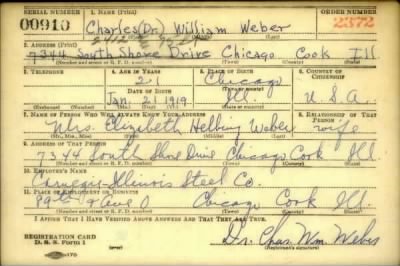 SERIAL NUMBER 1. NAME (Print) ORDER NUMBER
00910 Charles (Dr.) William Weber 2372
2. ADDRESS (Print)
7344 South Shore Drive Chicago Cook Ill
(Number and street or R. F. D. number) (Town) (County) (State)
3. TELEPHONE 4. AGE IN YEARS 5. PLACE OF BIRTH 6. COUNTRY OF CITIZENSHIP
21 Chicago
DATE OF BIRTH (Town or county)
Jan 21 1919 Ill. U.S.A.
(Exchange) (No.) (Mo.) (Day) (Yr.) (State or country)
7. NAME OF PERSON WHO WILL ALWAYS KNOW YOUR ADDRESS 8. RELATIONSHIP OF THAT PERSON
Mrs. Elizabeth Helbing Weber wife
(Mr., Mrs., Miss) (First) (Middle) (Last)
9. ADDRESS OF THAT PERSON
7344 South Shore Drive Chicago Cook Ill.
(Number and street or R. F. D. number) (Town) (County) (State)
10. EMPLOYER'S NAME
Carnegie-Illinois Steel Co.
11. PLACE OF EMPLOYMENT OR BUSINESS
89th & Ave O Chicago Cook Ill.
(Number and street or R. F. D. number) (Town) (County) (State)
I AFFIRM THAT I HAVE VERIFIED ABOVE ANSWERS AND THAT THEY ARE TRUE.
REGISTRATION CARD
D. S. S. Form 1 Dr. Chas. Wm. Weber
(Registrant's signature)